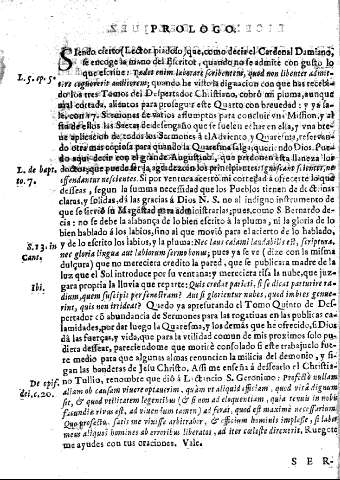 PROLOGO.
SIendo cierto (Lector piadoso) que, como decia el Cardenal Damiano,
se encoge la mano del Escritor, quando no se admite con gusto lo
L. 5. ep. 5.
que escrive: Tædet enim laborare scribentem, quod non libenter admit-
tere cognoverit auditorem; quando he visto la dignacion con que has recebi-
do los tres Tomos del Despertador Christiano, cobrò mi pluma, aunque
mal cortada, alientos para proseguir este Quarto con brevedad: y ya sa-
le, con 17. Sermones de varios assumptos para concluir vna Mission, y al
fin de ellos las Saetas de desengaño que se suelen echar en ella, y vna bre-
ve aplicacion de todos los Sermones à al Adviento, y Quaresma, reservan-
do otra mas copiosa para quando la Quaresma salga; queriendo Dios. Pue-
do aqui decir con el grande Augustino, que perdonen esta llaneza los
L. de bapt.
to. 7.
doctos, que puede ser la agradezcan los principiantes: Ignoscant scientes, ne
offendantur nescientes. Si por ventura acertò mi cortedad à ofrecerte lo que
desseas, segun la summa necessidad que los Pueblos tienen de doctrinas
claras, y solidas, dà las gracias à Dios N. S. no al indigno instrumento de
que se sirviò su Magestad para administrarlas; pues, como S. Bernardo de-
cia: no se debe la alabança de lo bien escrito à la pluma, ni la gloria de lo
bien hablado à los labios, sino al que moviò para el acierto de lo hablado,
S. 13. in
Cant.
y de lo escrito los labios, y la pluma: Nec laus calami laudabilis est, scriptura,
nec gloria lingua aut labiorum sermo bonus; pues ya se ve (dize con la misma
dulçura) que no mereciera credito la pared, que se publicara madre de la
luz que el Sol introduce por su ventana; y mereciera risa la nube, que juz-
Ibi.
gara propria la lluvia que reparte: Quis credat parieti, si se dicat parturire ra-
dium, quem suscipit per fenestram? Aut si glorientur nubes, quod imbres genue-
rint, quis non irrideat? Quedo ya aprestando el Tomo Quinto de Des-
pertador cõ abundancia de Sermones para las rogativas en las publicas ca-
lamidades, por dar luego la Quaresma, y los demàs que he ofrecido, si Dios
dà las fuerças, y vida, que para la vtilidad comun de mis proximos solo pu-
diera dessear, pareciendome que morirè consolado si este trabajuelo fue-
re medio para que algunas almas renuncien la milicia del demonio, y si-
gan las banderas de Jesu Christo. Assi me enseña à dessearlo el Christia-
De opif.
dei, c. 20.
no Tullio, renombre que diò à Lactancio S. Geronimo: Profectò nullam
aliam ob causam vivere optaverim, quàm vt aliquid efficiam, quod vitâ dignum
sit, & quod vtilitatem legentibus (& si non ad eloquentiam, quia tenuis in nobis
facundiæ rivus est, ad vivendum tamen) adferat, quod est maximè necessarium.
Quo profecto, satis me vixisse arbitrabor, & officium hominis implesse, si labor
meus aliquos homines ab erroribus liberatos, ad iter cœleste direxerit. Ruegote
me ayudes con tus oraciones. Vale.
SER-